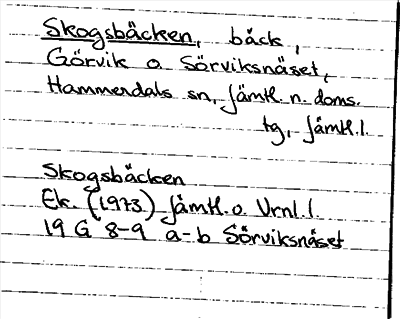 Skogsbäcken, bäck,
Görvik o Sörviksnäset,
Hammerdals sn, Jämtl. n. doms.
tg, Jämtl. l.
Skogsbäcken
Ek. (1973) Jämtl. o. Vrnl. l.
19 G 8-9 a-b Sörviksnäset